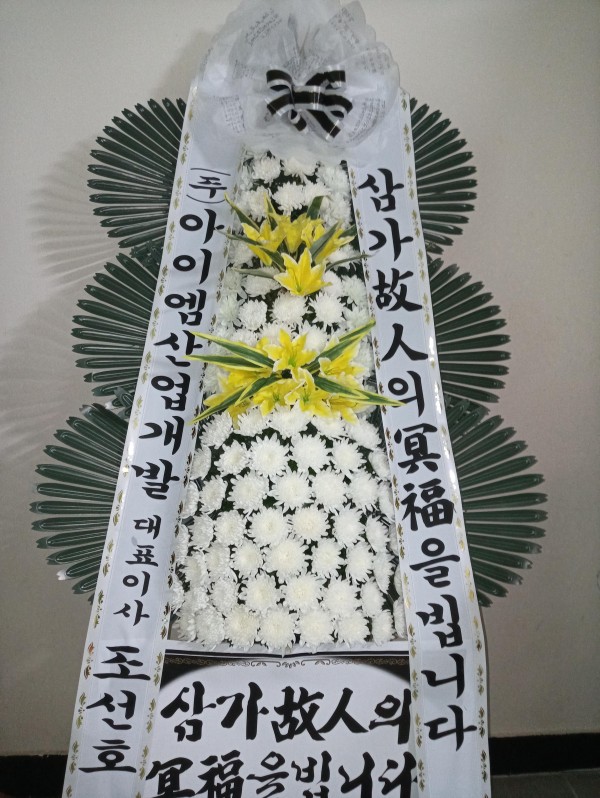 삼가故人의冥福을빕니다
(주)아이엠산업개발 대표이사 조선호
삼가故人의
冥福을빕니다